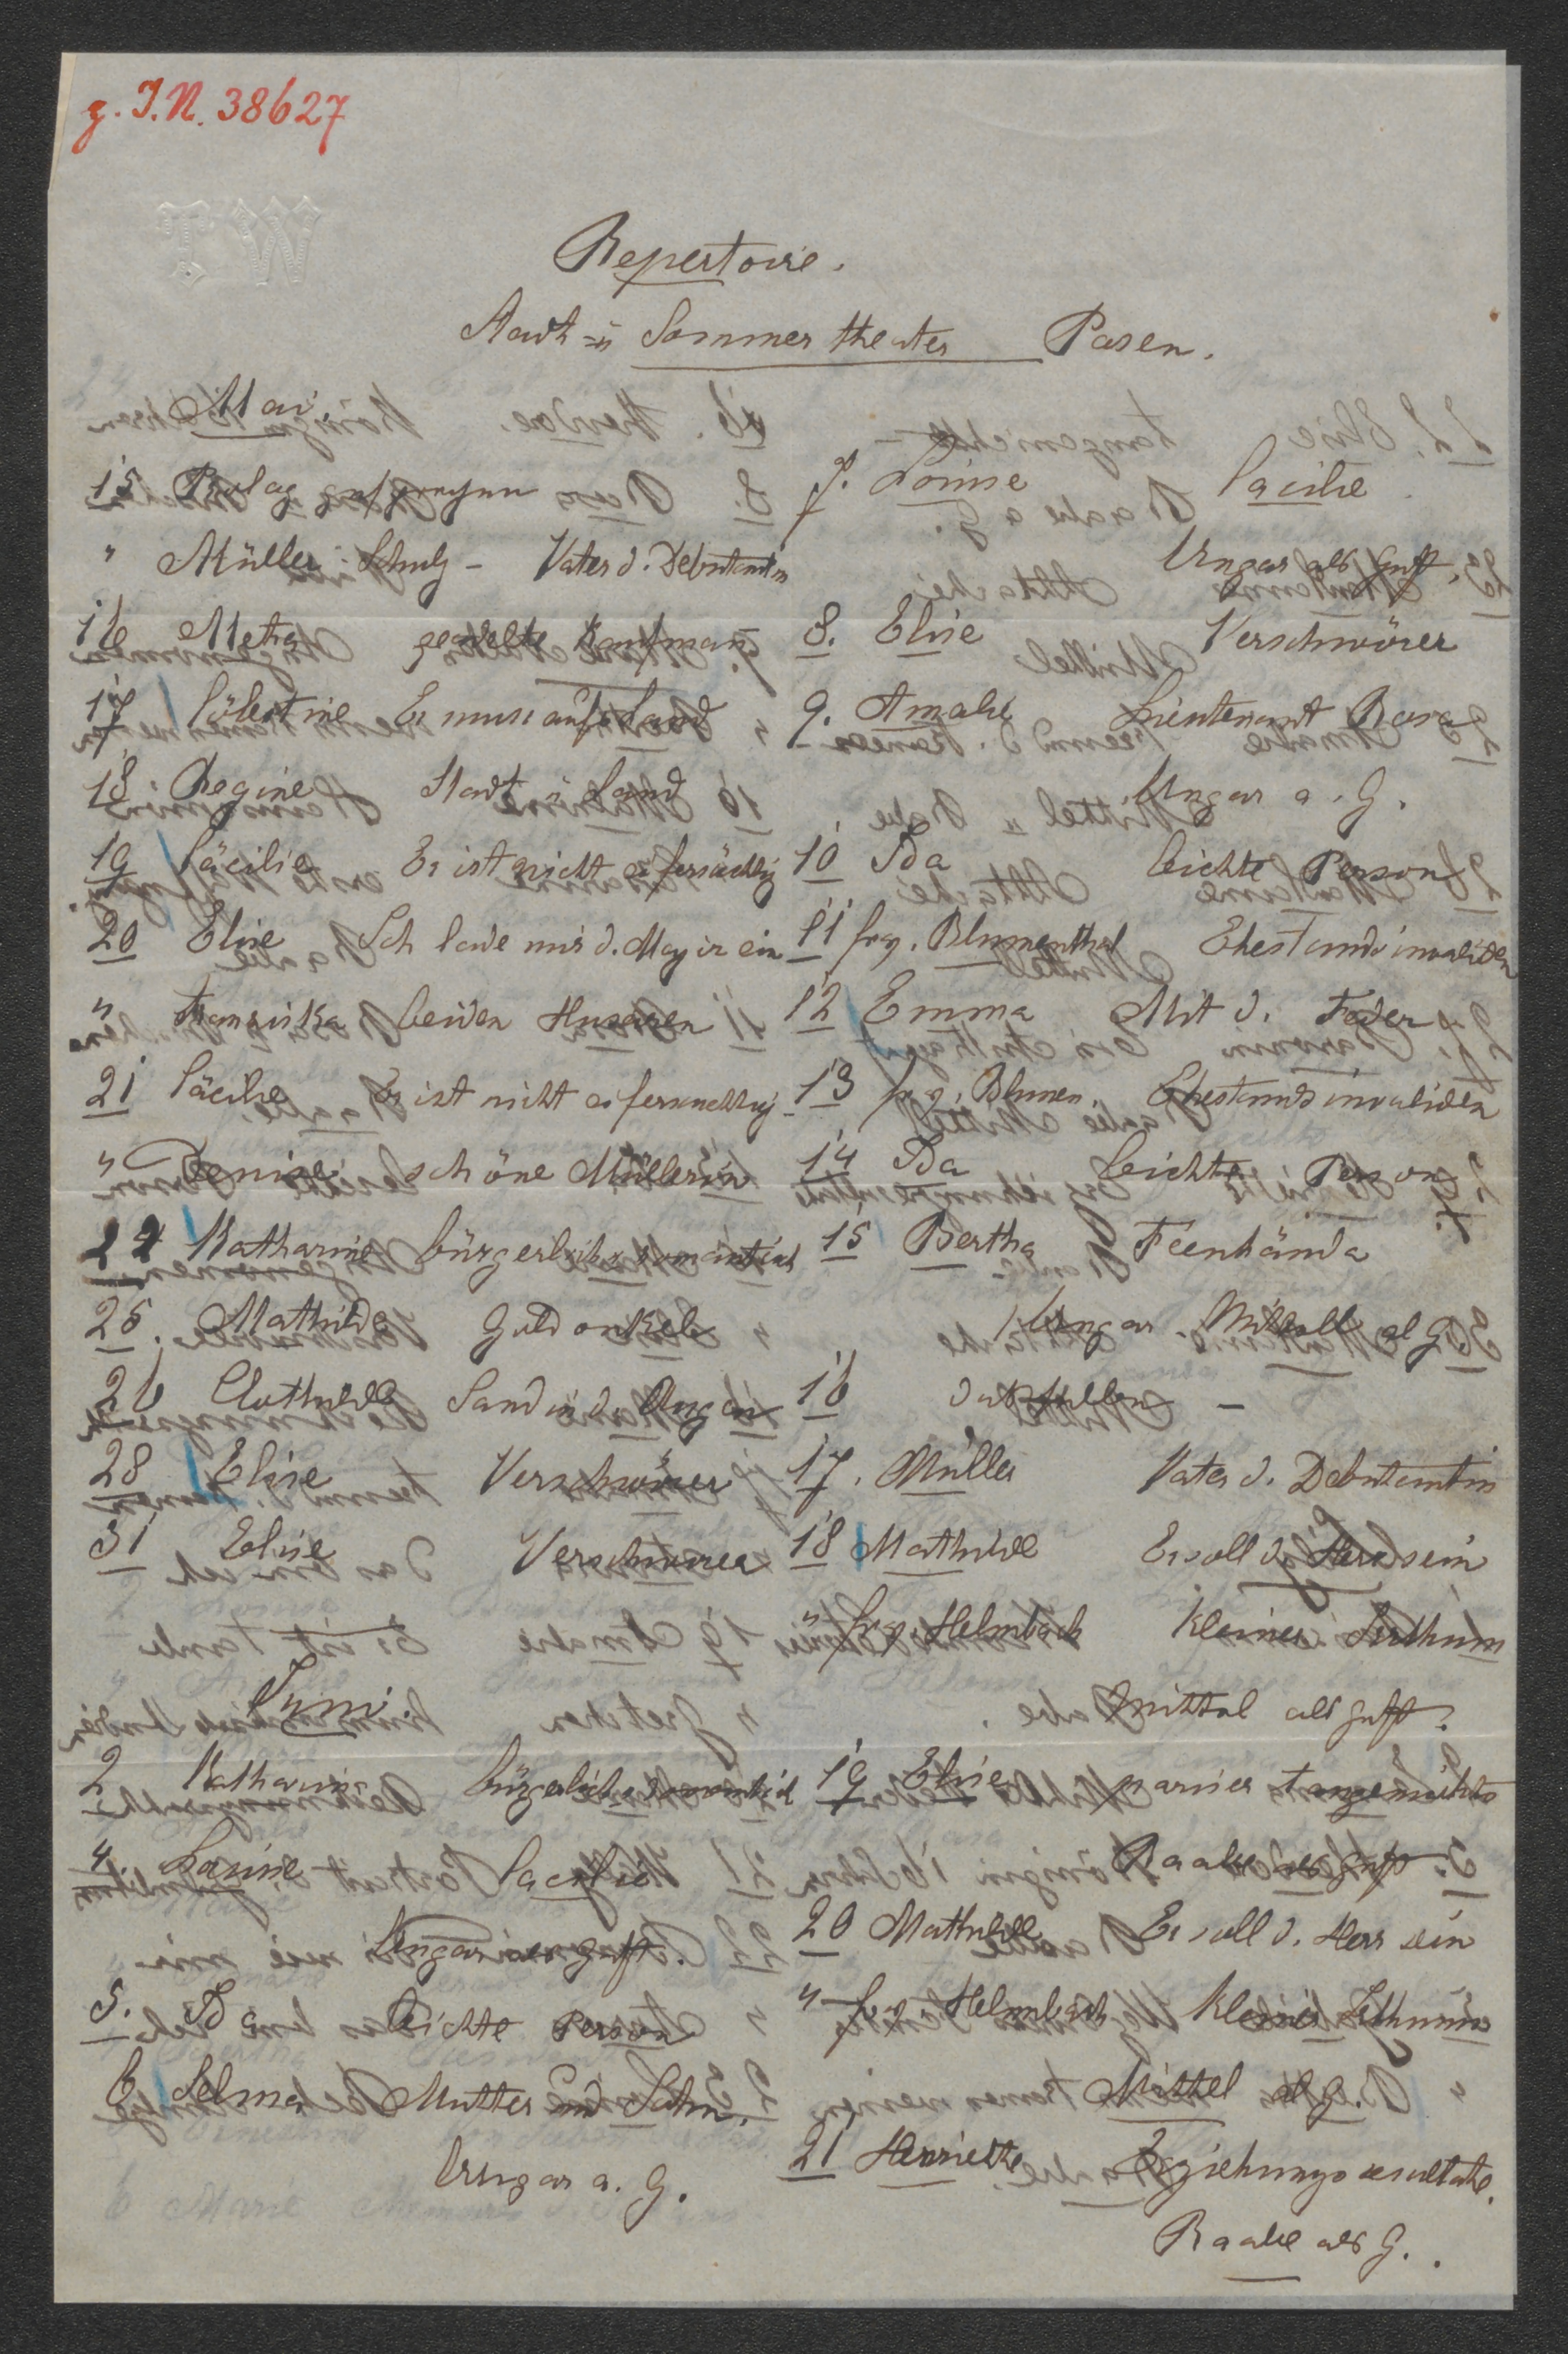 z. I.N. 38627
T.W
Repertoire.
Stadt u Sommer theater Posen.
Mai.
15 Prolog gesprochen
" Müller Schulz - Vater d. Debutantin
16 Metha geadelte Kaufmañ
17 Cölestine Er muss aufs Land
18. Regine Stadt u Land
19 Cäcilie Er ist nicht eifersüchtig
20 Elise Ich lade mir d. Major ein
" Franziska beiden Husaren
21 Cäcilie Er ist nicht eifersuchtig
" Denise schöne Müllerin
24 Katharine bürgerlich u romantisch
25. Mathilde Goldonkel
26 Clothilde Sand in d. Augen
28 Elise Verschwörer
31 Elise Verschwörer
Juni
2 Katharine bürgerlich u romantisch
4. Louise Cacilie
Ungar als Gast.
5. Ida leichte Person
6 Selma Mutter und Sohn.
Ungar a. G.
7. Louise Cacilie
Ungar als Gast.
8. Elise Verschwörer
9. Amalie Lieutenant Rosa
Ungar a. G.
10 Ida leichte Person
11 frz. Blumenthal Ehestandsinvaliden
12 Emma Mit d. Feder
13 frz. Blumen. Ehestandsinvaliden
14 Ida leichte Person
15 Bertha Feenhände
Ungar Mittell al G
16 dasselbe -
17. Müller Vater d. Debutantin
18 Mathilde Er soll d. Herr sein
" frz. Helmbach Kleiner Irrthum
Mittel als Gast.
19 Elise Pariser Taugenichts
Raabe als Gast
20 Mathilde Er soll d. Herr sein
" frz. Helmbach Kleiner Irthum
Mittel al G.
21 Henriette Erziehungsresultate.
Raabe als G.